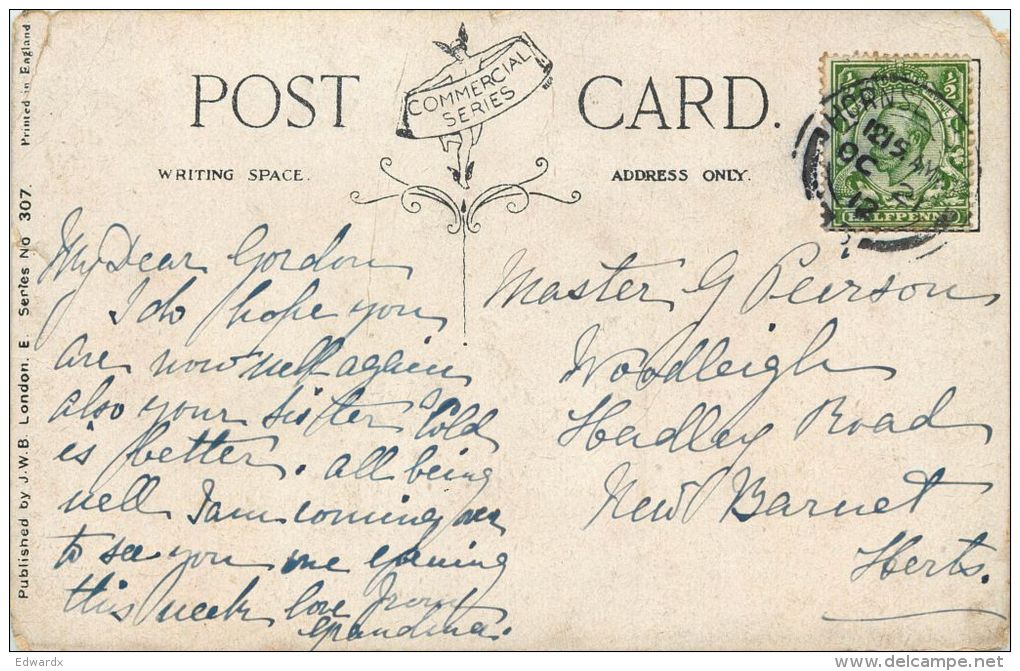 POST CARD.
COMMERCIAL
SERIES
WRITING SPACE.
ADDRESS ONLY.
Printed in England
Published by J.W.B. London. E. Series No 307.
HORNSEY
12 15 AM
OC 21
12
HALFPENNY
My Dear Gordon
I do hope you
are now well again
also your sister's Cold
is better. All being
well I am coming over
to see you one evening
this week love from
Grandma.
Master G Peirson
Woodleigh
Hadley Road
New Barnet
Herts.
Edwardx
www.delcampe.net